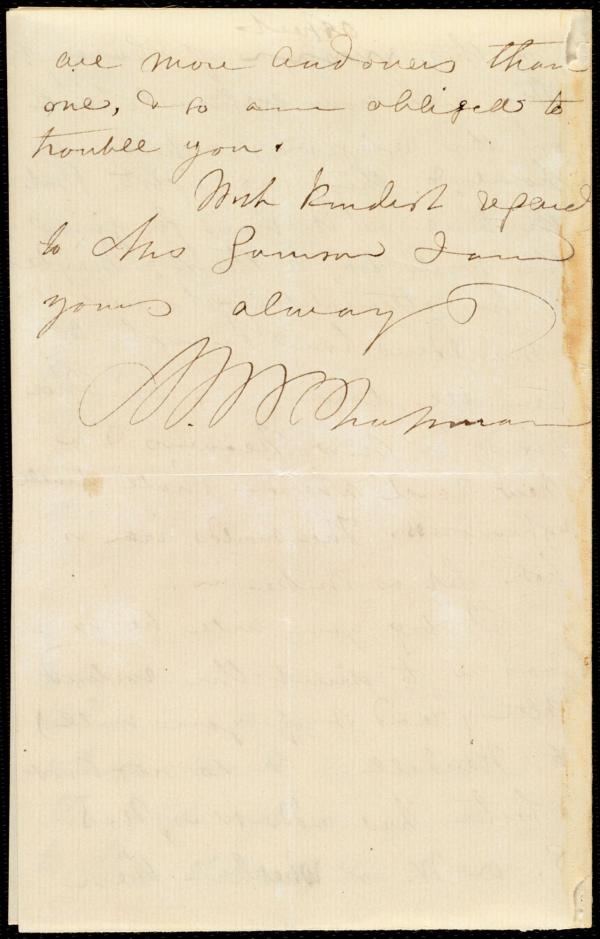 are more Andovers than
one, & so am obliged to
trouble you.
With kindest regard
to Mrs Garrison I am
yours always
M. W. Chapman